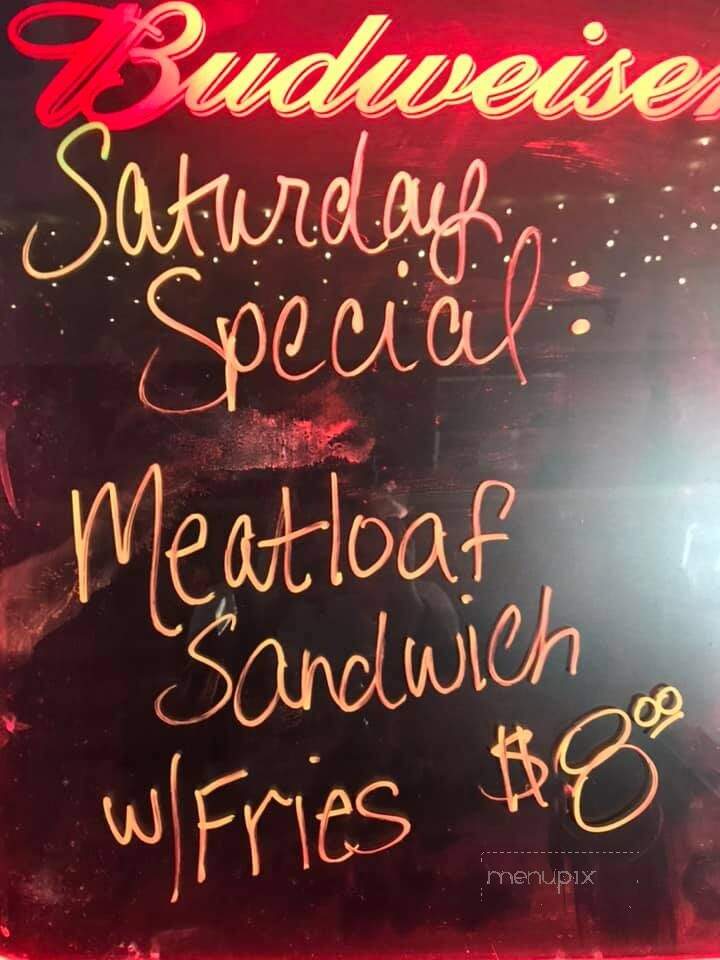 Budweiser
Saturday
Special:
Meatloaf
Sandwich
w/Fries $8.00
menupix